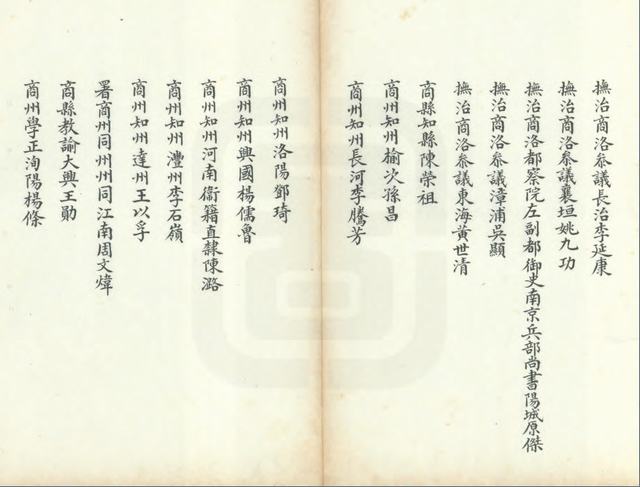 撫治商洛叅議長治李延康
撫治商洛叅議襄垣姚九功
撫治商洛都察院左副都御史南京兵部尚書陽城原傑
撫治商洛叅議漳浦吳顯
撫治商洛叅議東海黃世清
商縣知縣陳榮祖
商州知州榆次孫昌
商州知州長河李騰芳
商州知州洛陽鄧琦
商州知州興國楊儒魯
商州知州河南衞籍直隸陳潞
商州知州灃州李石嶺
商州知州達州王以孚
署商州同州州同江南周文煒
商縣教諭大興王勛
商州學正洵陽楊條